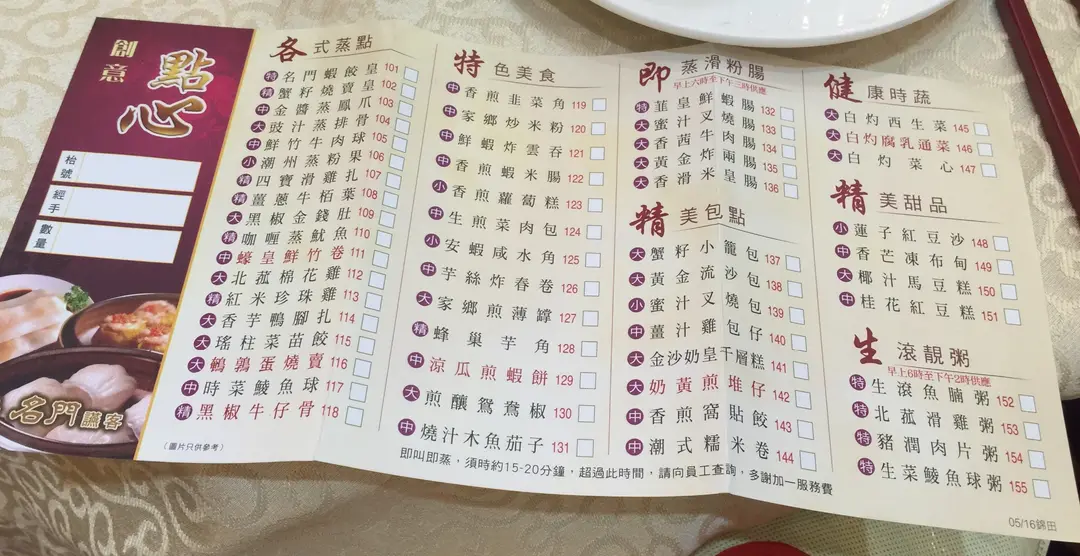 創意
點心
枱號
經手
數量
名門讌客
各式蒸點
特 名門蝦餃皇 101
精 蟹籽燒賣皇 102
中 金醬蒸鳳爪 103
大 豉汁蒸排骨 104
中 鮮竹牛肉球 105
小 潮州蒸粉果 106
精 四寶滑雞扎 107
精 薑蔥牛栢葉 108
大 黑椒金錢肚 109
精 咖喱蒸魷魚 110
中 蠔皇鮮竹卷 111
大 北菰棉花雞 112
精 紅米珍珠雞 113
大 香芋鴨腳扎 114
大 瑤柱菜苗餃 115
大 鵪鶉蛋燒賣 116
中 時菜鯪魚球 117
精 黑椒牛仔骨 118
（圖片只供參考）
特色美食
中 香煎韮菜角 119
中 家鄉炒米粉 120
中 鮮蝦炸雲吞 121
中 香煎蝦米腸 122
小 香煎蘿蔔糕 123
中 生煎菜肉包 124
小 安蝦咸水角 125
中 芋絲炸春卷 126
大 家鄉煎薄罉 127
精 蜂巢芋角 128
中 涼瓜煎蝦餅 129
大 煎釀鴛鴦椒 130
中 燒汁木魚茄子 131
即蒸滑粉腸
早上六時至下午三時供應
特 韮皇鮮蝦腸 132
大 蜜汁叉燒腸 133
大 香茜牛肉腸 134
大 黃金炸兩腸 135
大 香滑米皇腸 136
精美包點
大 蟹籽小籠包 137
大 黃金流沙包 138
小 蜜汁叉燒包 139
中 薑汁雞包仔 140
大 金沙奶皇千層糕 141
大 奶黃煎堆仔 142
中 香煎窩貼餃 143
中 潮式糯米卷 144
即叫即蒸，須時約15-20分鐘，超過此時間，請向員工查詢，多謝加一服務費
健康時蔬
大 白灼西生菜 145
大 白灼腐乳通菜 146
大 白灼菜心 147
精美甜品
小 蓮子紅豆沙 148
中 香芒凍布甸 149
大 椰汁馬豆糕 150
中 桂花紅豆糕 151
生滾靚粥
早上6時至下午2時供應
特 生滾魚腩粥 152
特 北菰滑雞粥 153
特 豬潤肉片粥 154
特 生菜鯪魚球粥 155
05/16錦田